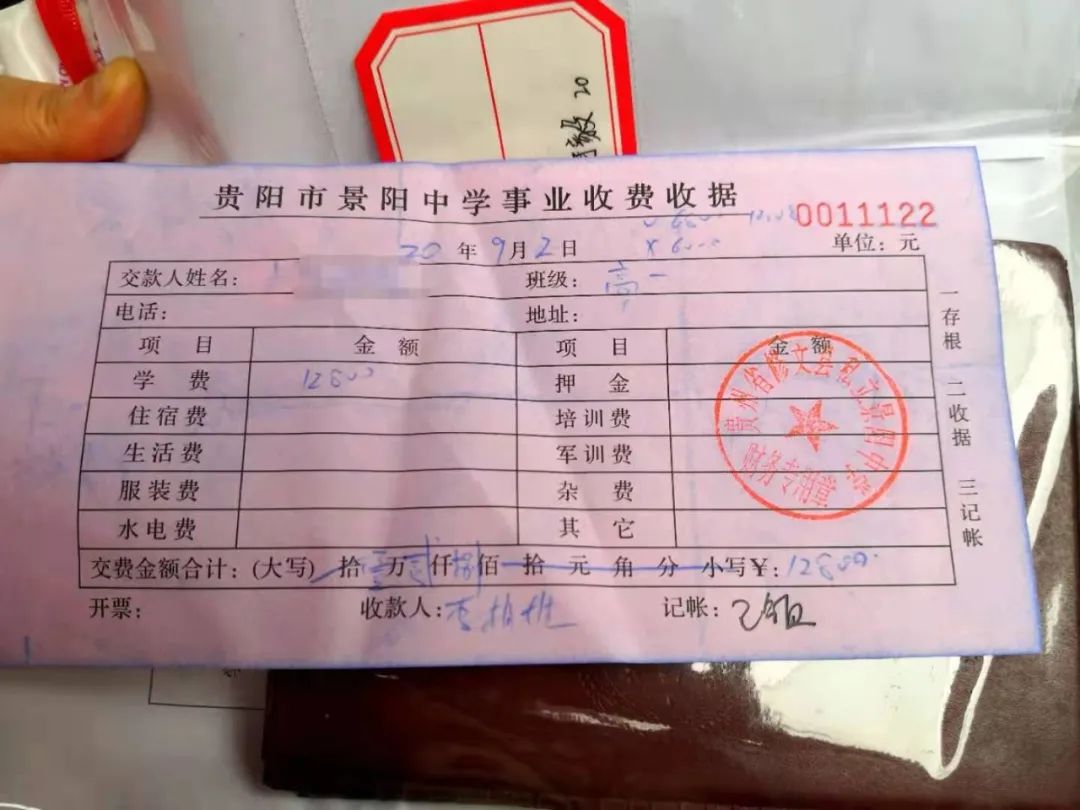 缴 20
贵阳市景阳中学事业收费收据
0011122
20 年 9 月 2 日
x 6000
单位：元
交款人姓名： 班级：高一
电话： 地址：
项 目 金 额 项 目 金 额
学 费 12800 押 金
住宿费 培训费
生活费 军训费
服装费 杂 费
水电费 其 它
交费金额合计：(大写) 拾壹万贰仟捌佰 拾 元 角 分 小写￥：12800
开票： 收款人： 记帐：
一存根 二收据 三记帐
贵州省修文县私立景阳中学
财务专用章